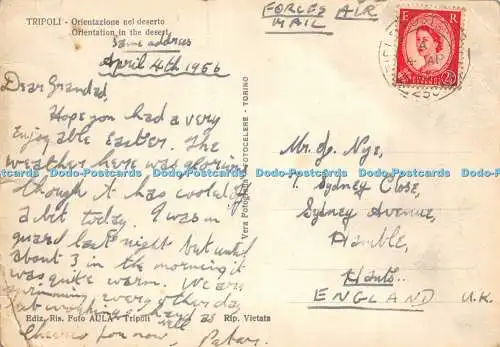 TRIPOLI - Orientazione nel deserto
Orientation in the desert
same address
April 4th 1956
Dear Grandad,
Hope you had a very
enjoyable Easter. The
weather here was glorious
though it has cooled off
a bit today. I was on
guard last night but until
about 3 in the morning it
was quite warm. We are
swimming every other day
but working hard as
well
Cheerio for now, Peter.
Ediz. Ris. Foto AULA - Tripoli Rip. Vietata
Vera Fotografia FOTOCELERE - TORINO
FORCES AIR
MAIL
E R
POSTAGE
FIELD POST OFFICE
4 AP
Mr. J. Nye,
1, Sydney Close,
Sydney Avenue,
Hamble,
Hants.
ENGLAND U.K.
Dodo-Postcards Dodo-Postcards Dodo-Postcards Dodo-Postcards